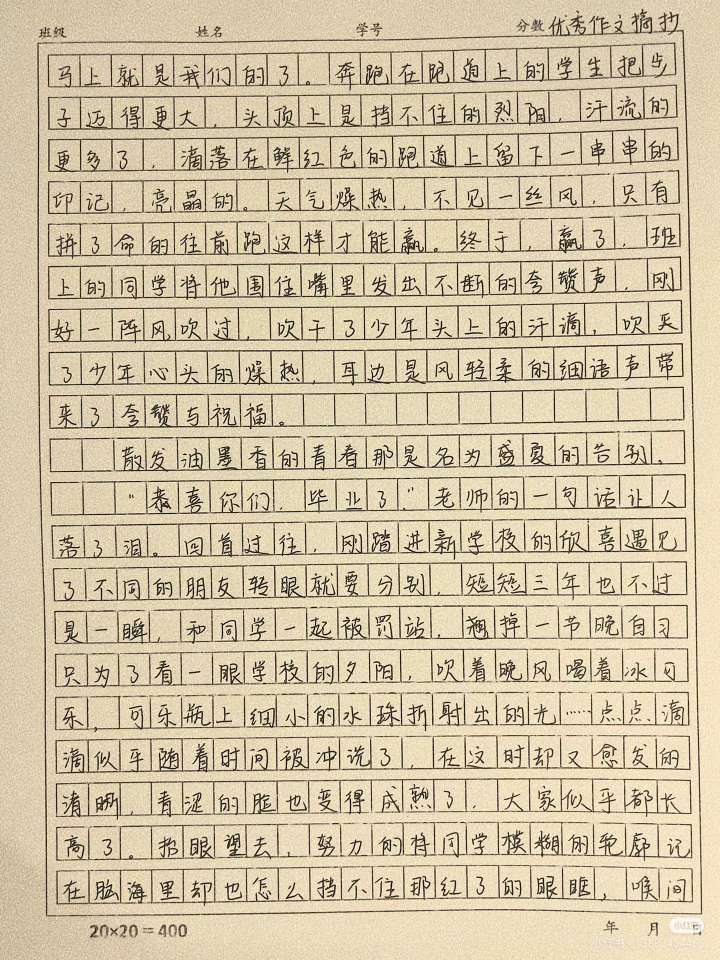 班级 姓名 学号 分数 优秀作文摘抄
马上就是我们的了。奔跑在跑道上的学生把步
子迈得更大，头顶上是挡不住的烈阳，汗流的
更多了，滴落在鲜红色的跑道上留下一串串的
印记，亮晶的。天气燥热，不见一丝风，只有
拼了命的往前跑这样才能赢。终于，赢了，班
上的同学将他围住嘴里发出不断的夸赞声，刚
好一阵风吹过，吹干了少年头上的汗滴，吹灭
了少年心头的燥热，耳边是风轻柔的细语声带
来了夸赞与祝福。
散发油墨香的青春那是名为盛夏的告别，
“恭喜你们，毕业了，”老师的一句话让人
落了泪。回首过往，刚踏进新学校的欣喜遇见
了不同的朋友转眼就要分别，短短三年也不过
是一瞬，和同学一起被罚站，翘掉一节晚自习
只为了看一眼学校的夕阳，吹着晚风喝着冰可
乐，可乐瓶上细小的水珠折射出的光……点点滴
滴似乎随着时间被冲说了，在这时却又愈发的
清晰，青涩的脸也变得成熟了，大家似乎都长
高了。抬眼望去，努力的将同学模糊的轮廓记
在脑海里却也怎么挡不住那红了的眼眶，喉间
20×20＝400 年 月 日